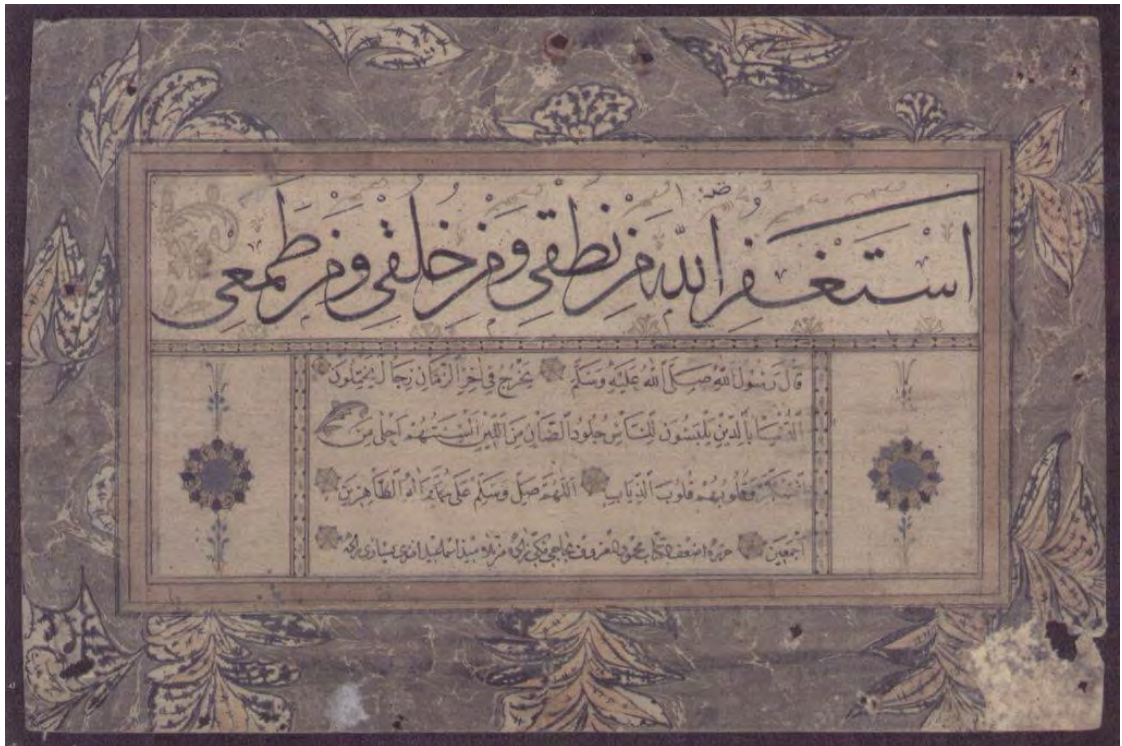 اَسْتَغْفِرُ اللّٰهَ مِنْ نُطْقِي وَمِنْ خُلْقِي وَمِنْ طَمَعِي
قَالَ رَسُولُ اللّٰهِ صَلَّى اللّٰهُ عَلَيْهِ وَسَلَّمَ يَخْرُجُ فِي آخِرِ الزَّمَانِ رِجَالٌ يَخْتِلُونَ
الدُّنْيَا بِالدِّينِ يَلْبَسُونَ لِلنَّاسِ جُلُودَ الضَّأْنِ مِنَ اللِّينِ اَلْسِنَتُهُمْ اَحْلَى مِنَ
السُّكَّرِ وَقُلُوبُهُمْ قُلُوبُ الذِّيَابِ اَللّٰهُمَّ صَلِّ وَسَلِّمْ عَلَى وَآلِهِ الطَّاهِرِينَ
اَجْمَعِينَ حرره اضعف الكتاب المعروف